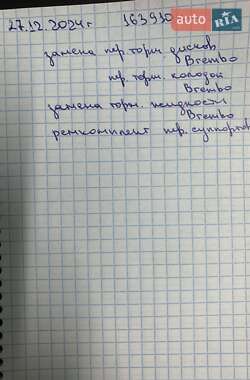 27.12.2024г 163910
auto RIA.com
замена пер. торм. дисков
Brembo
пер. торм. колодой
Brembo
замена торм. жидкости
Brembo
ремкомплект пер. суппортов